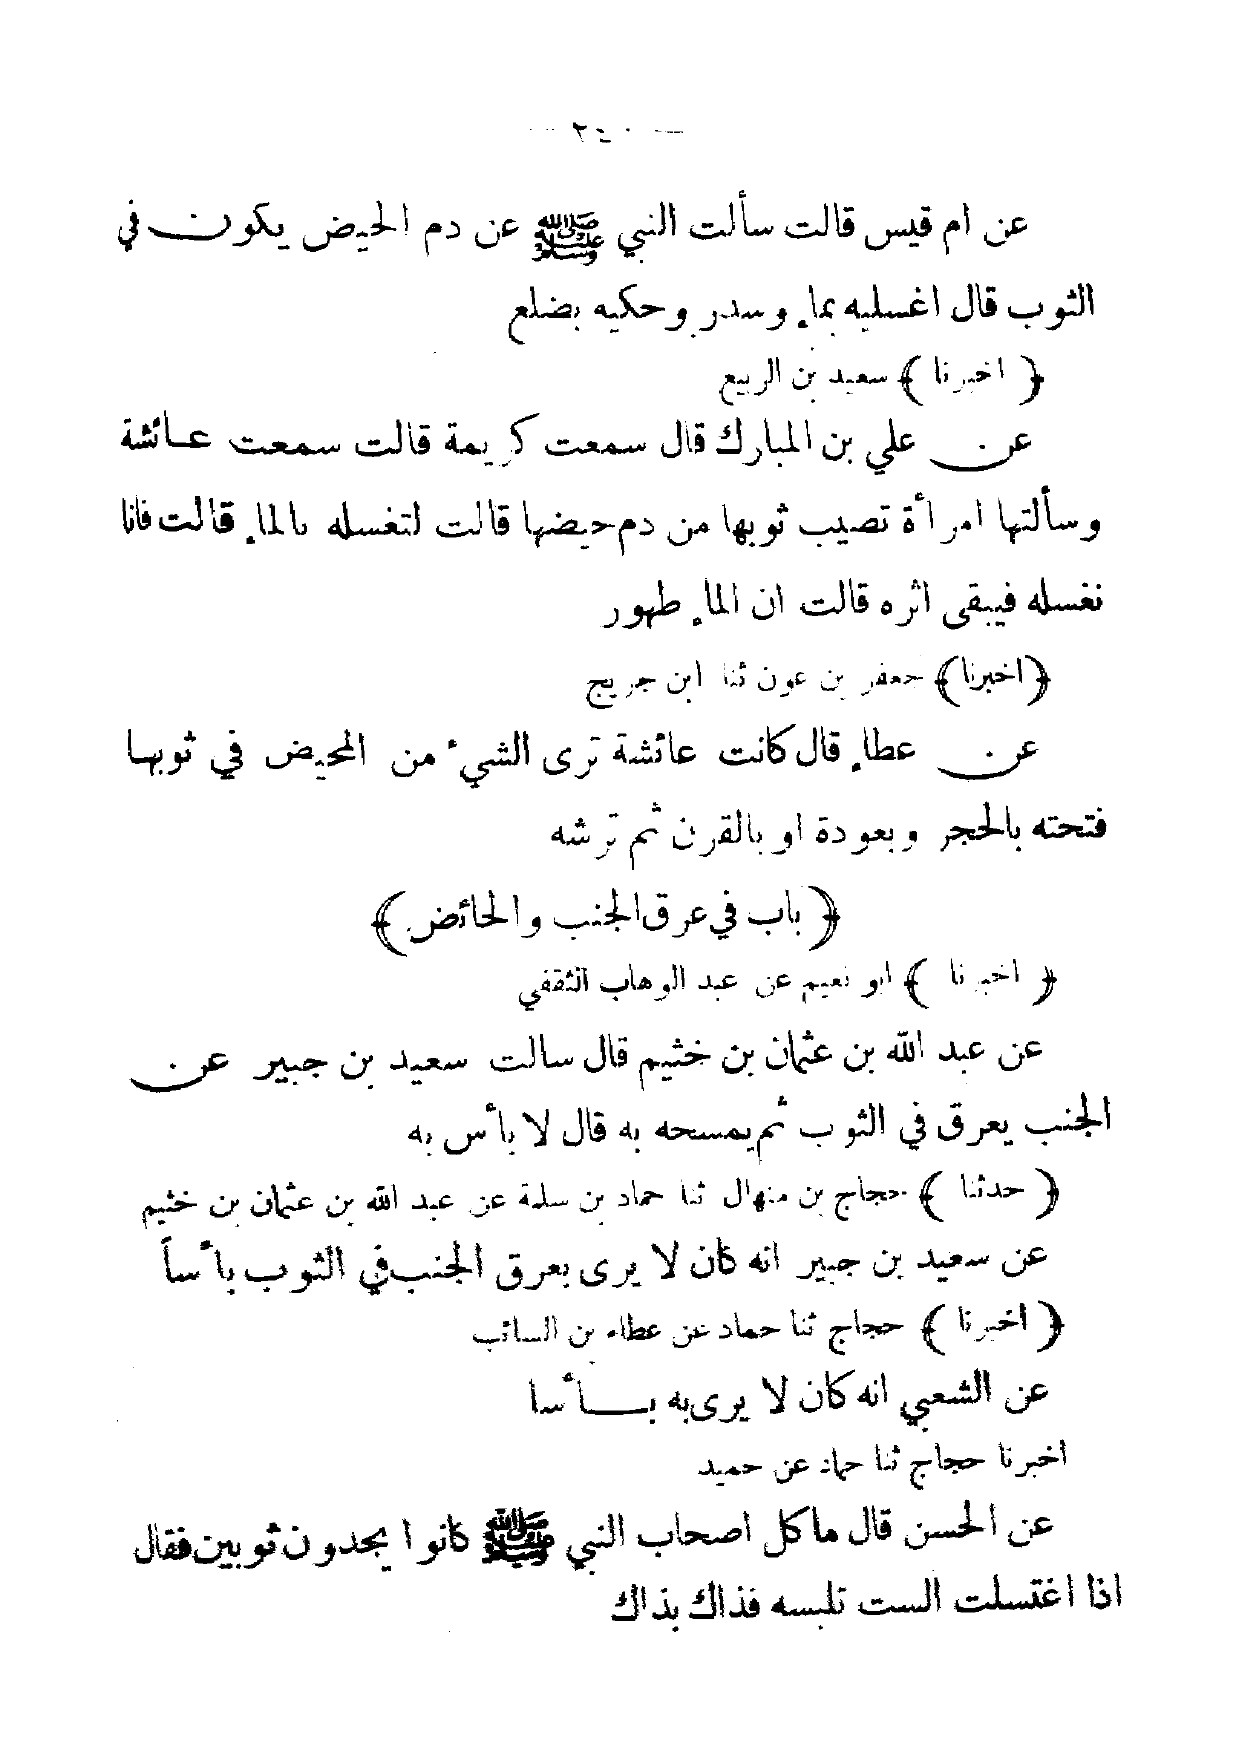 — ٢٤٠ —
عن ام قيس قالت سألت النبي ﷺ عن دم الحيض يكون في
الثوب قال اغسليه بماء وسدر وحكيه بضلع
﴿ اخبرنا ﴾ سعيد بن الربيع
عن علي بن المبارك قال سمعت كريمة قالت سمعت عائشة
وسألتها امرأة تصيب ثوبها من دم حيضها قالت لتغسله بالماء قالت فانا
نغسله فيبقى اثره قالت ان الماء طهور
﴿اخبرنا﴾ جعفر بن عون ثنا ابن جريج
عن عطاء قال كانت عائشة ترى الشيء من المحيض في ثوبها
فتحته بالحجر وبعودة او بالقرن ثم ترشه
﴿ باب في عرق الجنب والحائض ﴾
﴿ اخبرنا ﴾ ابو نعيم عن عبد الوهاب الثقفي
عن عبد الله بن عثمان بن خثيم قال سالت سعيد بن جبير عن
الجنب يعرق في الثوب ثم يمسحه به قال لا بأس به
﴿ حدثنا ﴾ حجاج بن منهال ثنا حماد بن سلمة عن عبد الله بن عثمان بن خثيم
عن سعيد بن جبير انه كان لا يرى بعرق الجنب في الثوب بأساً
﴿ اخبرنا ﴾ حجاج ثنا حماد عن عطاء بن السائب
عن الشعبي انه كان لا يرى به بأسا
اخبرنا حجاج ثنا حماد عن حميد
عن الحسن قال ما كل اصحاب النبي ﷺ كانوا يجدون ثوبين فقال
اذا اغتسلت الست تلبسه فذاك بذاك